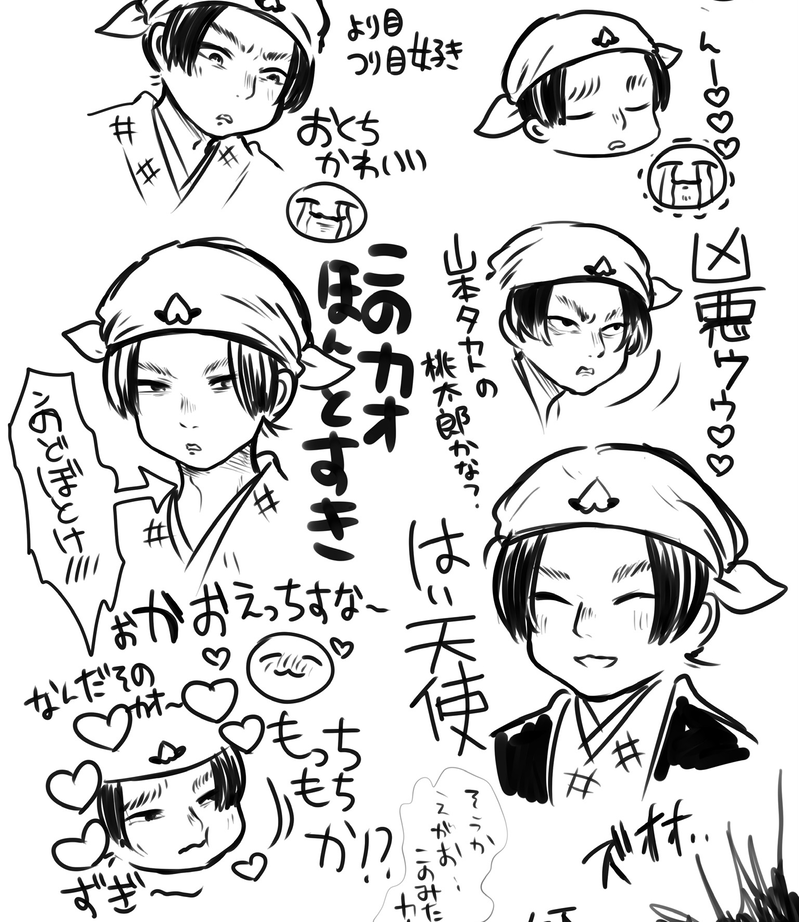 より目
つり目好き
おとち
かわいい
んー♡♡♡
このカオ
ほんとすき
山本タカトの
桃太郎かな?
凶悪ゥゥ♡♡
のどぼとけ
はい天使
おがおえっちすな〜
なんだその
カオ〜
もっち
もち
か!?
すぎ〜
そうか
えがお…
このみた
ズオオ..